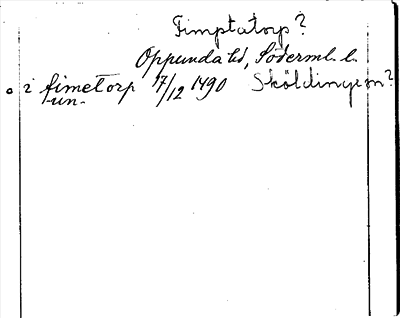 Fimptatorp?
Oppunda hd, Söderml. l.
i fimetorp 17/12 1490 Sköldinge sn?
un-